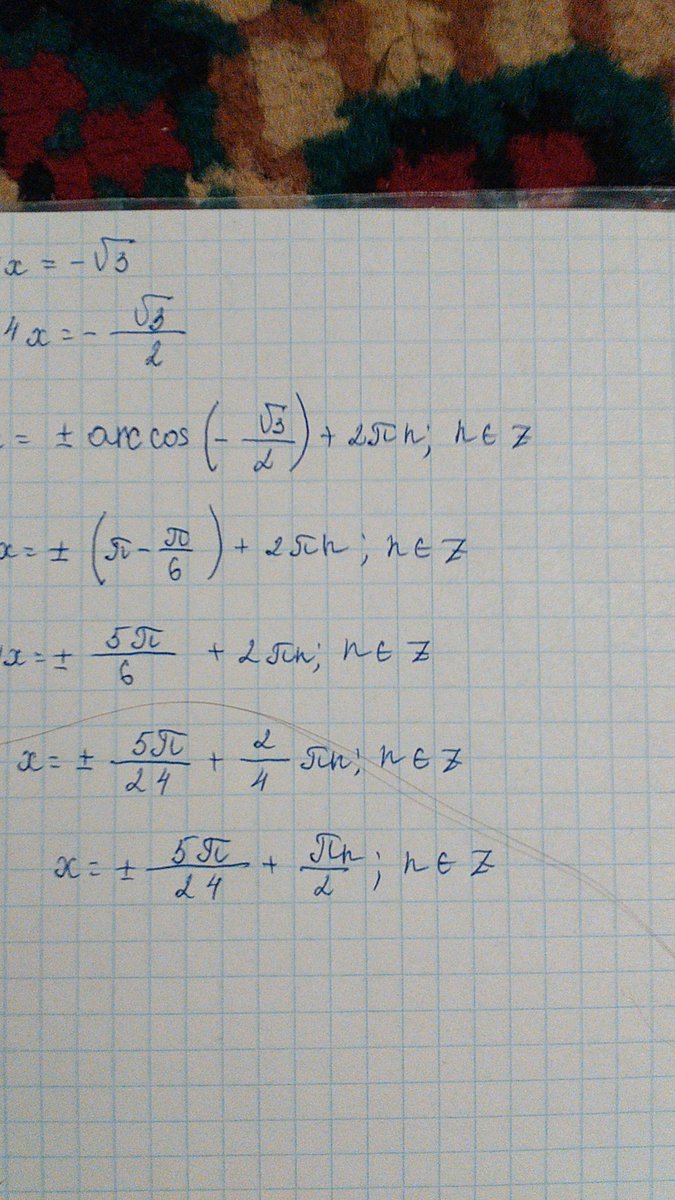 x = -√3
4x = - √3/2
= ± arccos (- √3/2) + 2πn; n ∈ Z
x = ± (π - π/6) + 2πn; n ∈ Z
x = ± 5π/6 + 2πn; n ∈ Z
x = ± 5π/24 + 2/4 πn; n ∈ Z
x = ± 5π/24 + πn/2; n ∈ Z